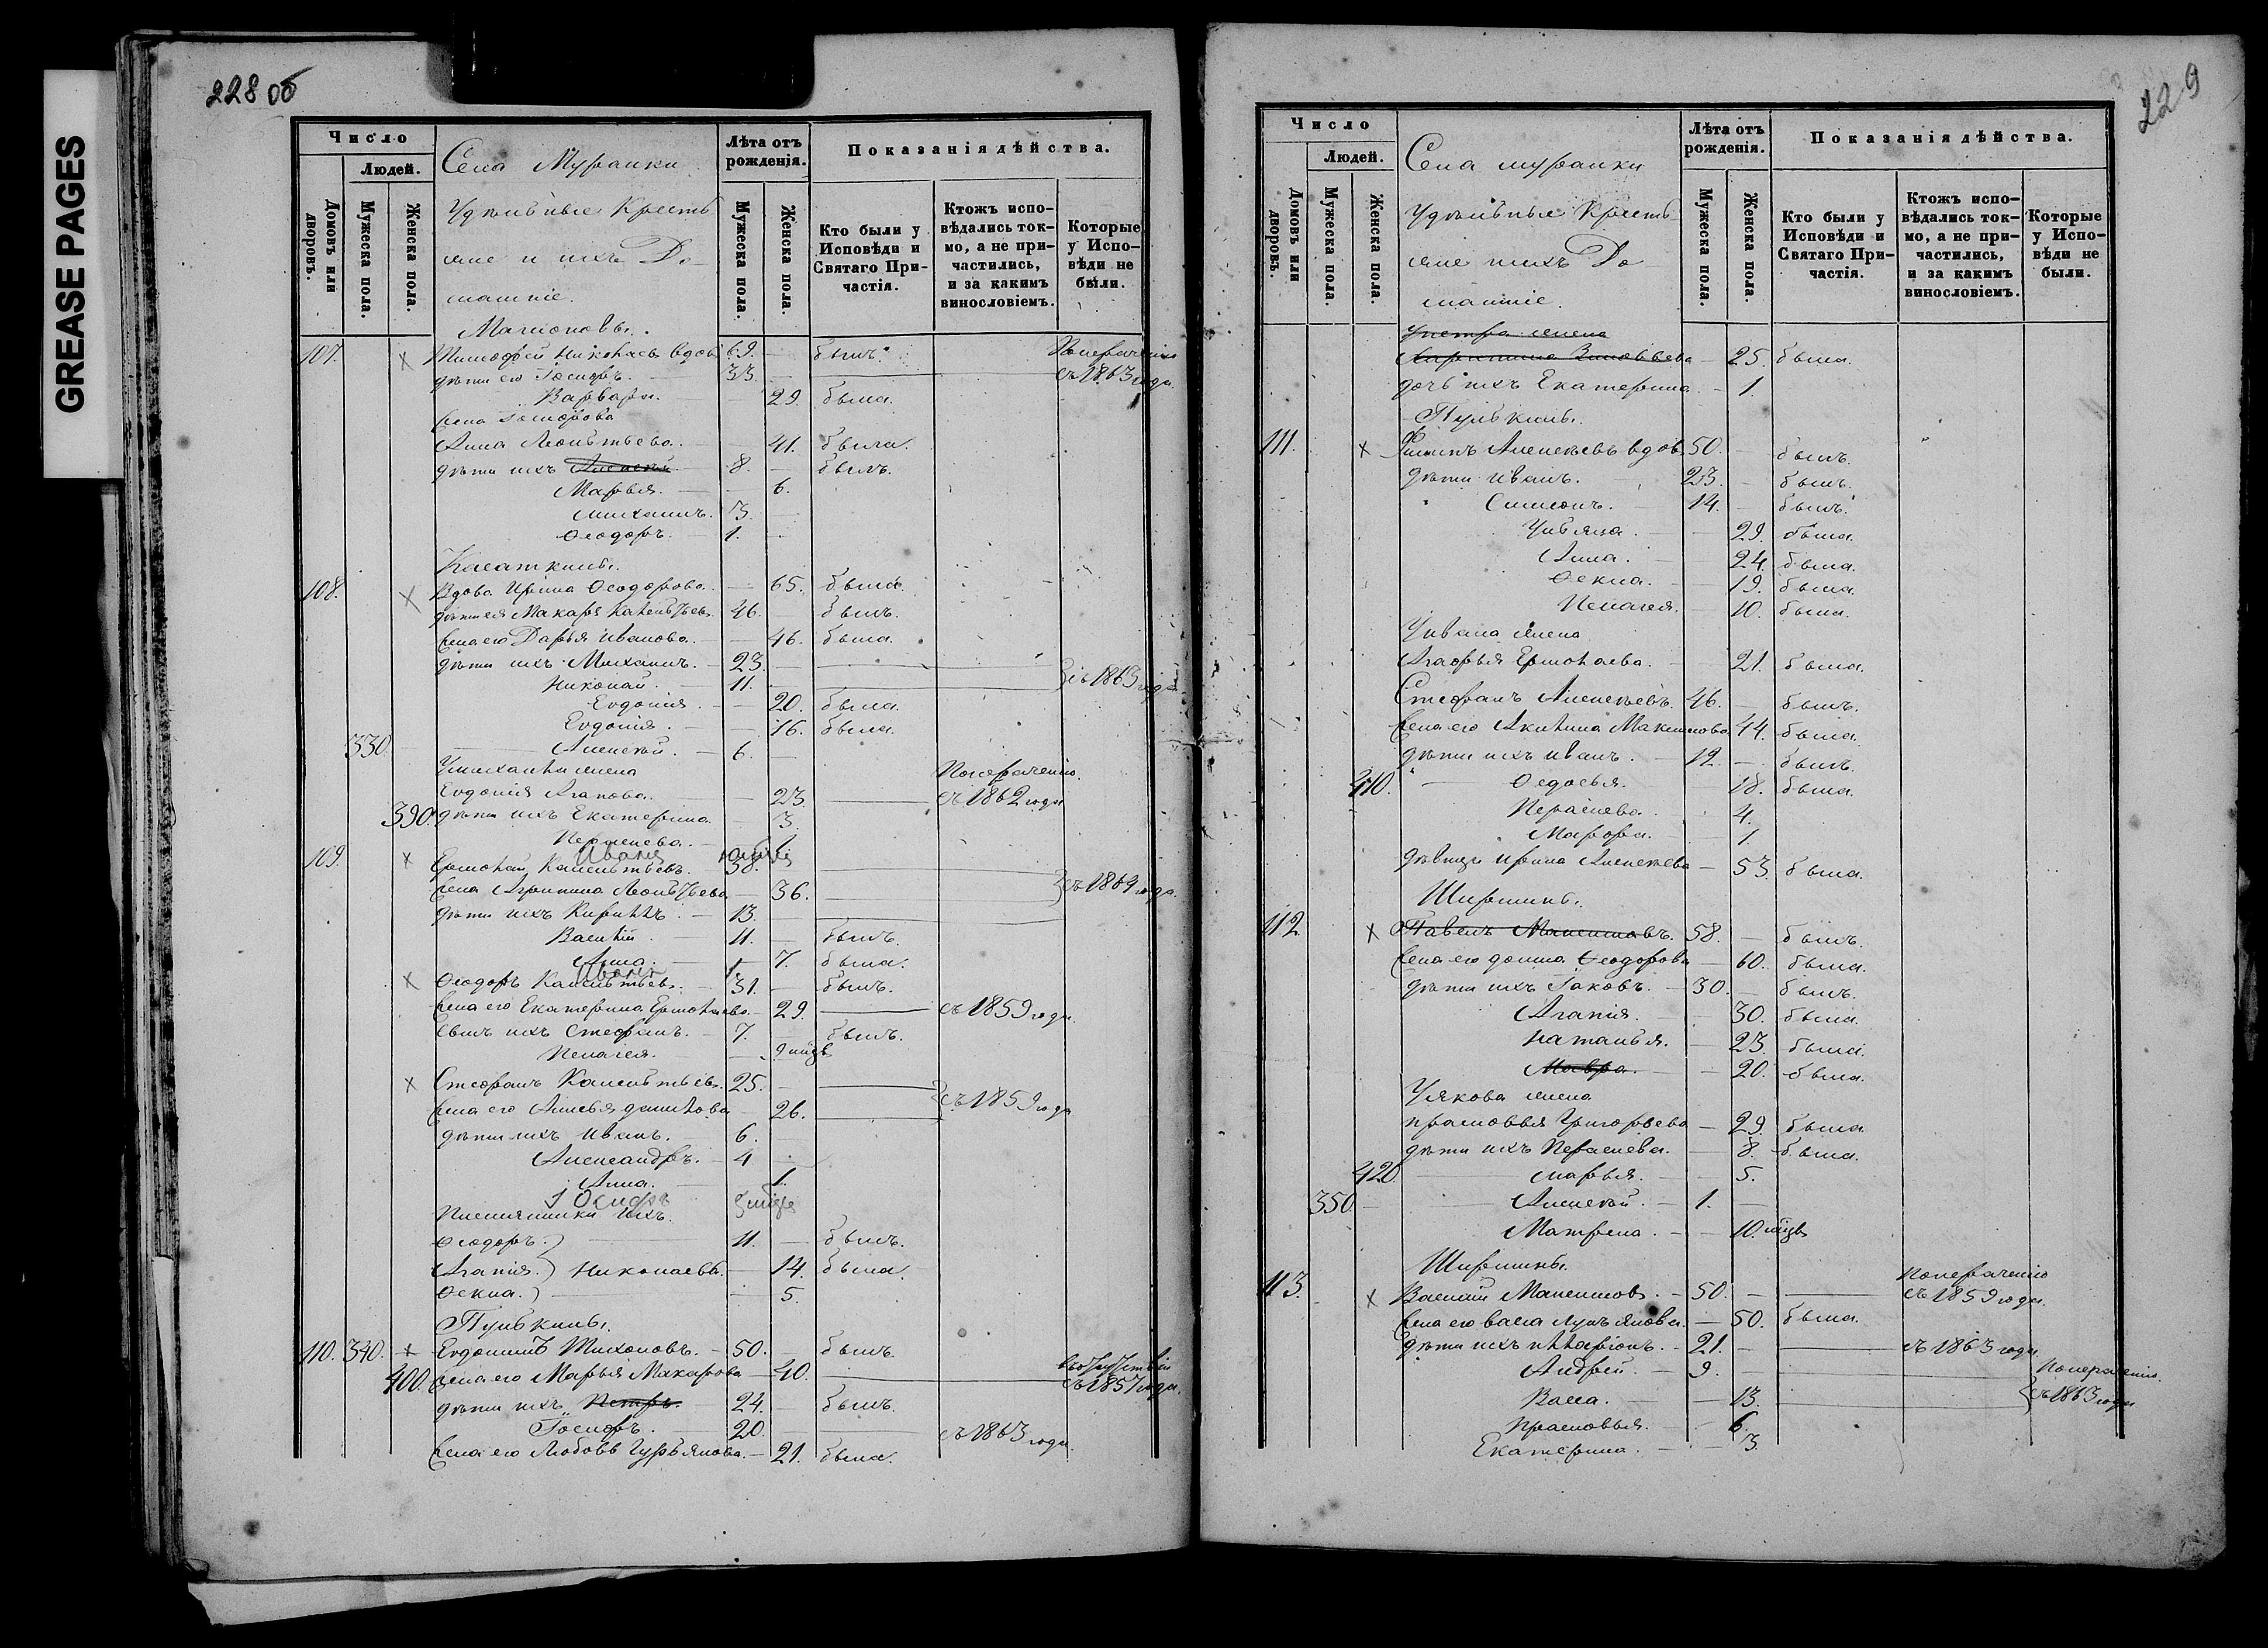 GREASE PAGES
228 об
Число
Людей.
Домовъ или дворовъ.
Мужеска пола.
Женска пола.
Села Муранки
Удѣльные Кресть
яне и ихъ До-
машніе.
Лѣта отъ рожденія.
Мужеска пола.
Женска пола.
Показанія дѣйства.
Кто были у Исповѣди и Святаго Причастія.
Ктожъ исповѣдались токмо, а не причастились, и за какимъ винословіемъ.
Которые у Исповѣди не были.
107. Тимофей Николаевъ вдовъ 69. — былъ.
дѣти его Іосифъ. 33. — По нераченію съ 1863 года.
Варвара. 29. была.
Жена Іосифова
Анна Леонтьева. — 41. была.
дѣти ихъ Алексѣй 8. — былъ.
Марья. — 6.
Михаилъ. 3. —
Ѳеодоръ. 1. —
Касаткины.
108. Вдова Ирина Ѳеодорова. — 65. была.
дѣти ея Макаръ Калентьевъ. 46. былъ.
Жена его Дарья Иванова. — 46. была.
дѣти ихъ Михаилъ. 23.
Николай. 11. — съ 1863 года.
Евдокія. — 20. была.
Евдокія. — 16. была.
330 Алексѣй. — 6. —
У Михаила жена
Евдокія Агапова. — 23. — По нераченію съ 1862 года
390. дѣти ихъ Екатерина. — 3.
Параскева. — 1.
Иванъ
109. Ермолай Калентьевъ. 38.
Жена Агрипина Леонтьева — 36. — съ 1864 года.
дѣти ихъ Кирилъ. — 13.
Василій. — 11. — былъ.
Анна. — 7. была.
Иванъ 1
Ѳеодоръ Калентьевъ. 31. — былъ.
Жена его Екатерина Ермолаева — 29. — съ 1859 года.
Сынъ ихъ Стефанъ. — 7. — былъ.
Пелагея. — 9 мцв
Стефанъ Калентьевъ. 25. —
Жена его Анисья Данилова — 26. — съ 1859 года
дѣти ихъ Иванъ. 6.
Александръ. — 4 —
Анна. 1.
Іосифъ
Племянники ихъ.
Ѳеодоръ.) — 11. — былъ.
Агапія.) Николаевы. — 14. была.
Ѳекла.) — 5.
Пулькины.
110. 340. Евдокимъ Тихоновъ. — 50. — былъ.
400. Жена его Марья Макарова — 40. — въ отсутствіи съ 1857 года.
дѣти ихъ Петръ. 24. — былъ.
Іосифъ. 20. — съ 1863 года.
Жена его Любовь Гурьянова. — 21. была.
229
Число
Людей.
Домовъ или дворовъ.
Мужеска пола.
Женска пола.
Села Муранки
Удѣльные Кресть
яне ихъ До
машніе.
Лѣта отъ рожденія.
Мужеска пола.
Женска пола.
Показанія дѣйства.
Кто были у Исповѣди и Святаго Причастія.
Ктожъ исповѣдались токмо, а не причастились, и за какимъ винословіемъ.
Которые у Исповѣди не были.
У Петра жена
Агрипина Зиновьева — 25. была.
дочь ихъ Екатерина. — 1.
Пулькины.
111. Филипъ Алексѣевъ вдовъ 50. — былъ.
дѣти Иванъ. 23. — былъ.
Симеонъ. — 14. — былъ.
Ульяна. — 29. была.
Анна. — 24. была.
Ѳекла. — 19. была.
Пелагея. — 10. была.
У Ивана жена
Агафья Ермолаева. — 21. была.
Стефанъ Алексѣевъ. 46. — былъ.
Жена его Акилина Максимова 44. была.
дѣти ихъ Иванъ. — 12. — былъ.
410. Ѳедосья. — 18. была.
Параскева. 4.
Марфа. — 1.
дѣвица Ирина Алексѣева — 53. была.
Ширшины.
112. Павелъ Максимовъ. 58. — былъ.
Жена его Домна Ѳеодорова — 60. была.
дѣти ихъ Іаковъ. — 30. — былъ.
Агапія. — 30. была.
Наталья. — 23. была.
Мавра. — 20. была.
У Якова жена
Прасковья Григорьева — 29. была.
дѣти ихъ Параскева. — 8. была.
420. Марья. — 5.
350. Алексѣй. — 1. —
Матрена. — 10. мцв
Ширшины.
113. Василій Максимовъ. — 50. — По нераченію съ 1859 года.
Жена его Васса Лукьянова. — 50. была.
дѣти ихъ Илларіонъ. — 21. — съ 1863 года.
Андрей. — 9. — По нераченію.
Васса. — 13. — съ 1863 года
Прасковья. 6.
Екатерина. — 3.